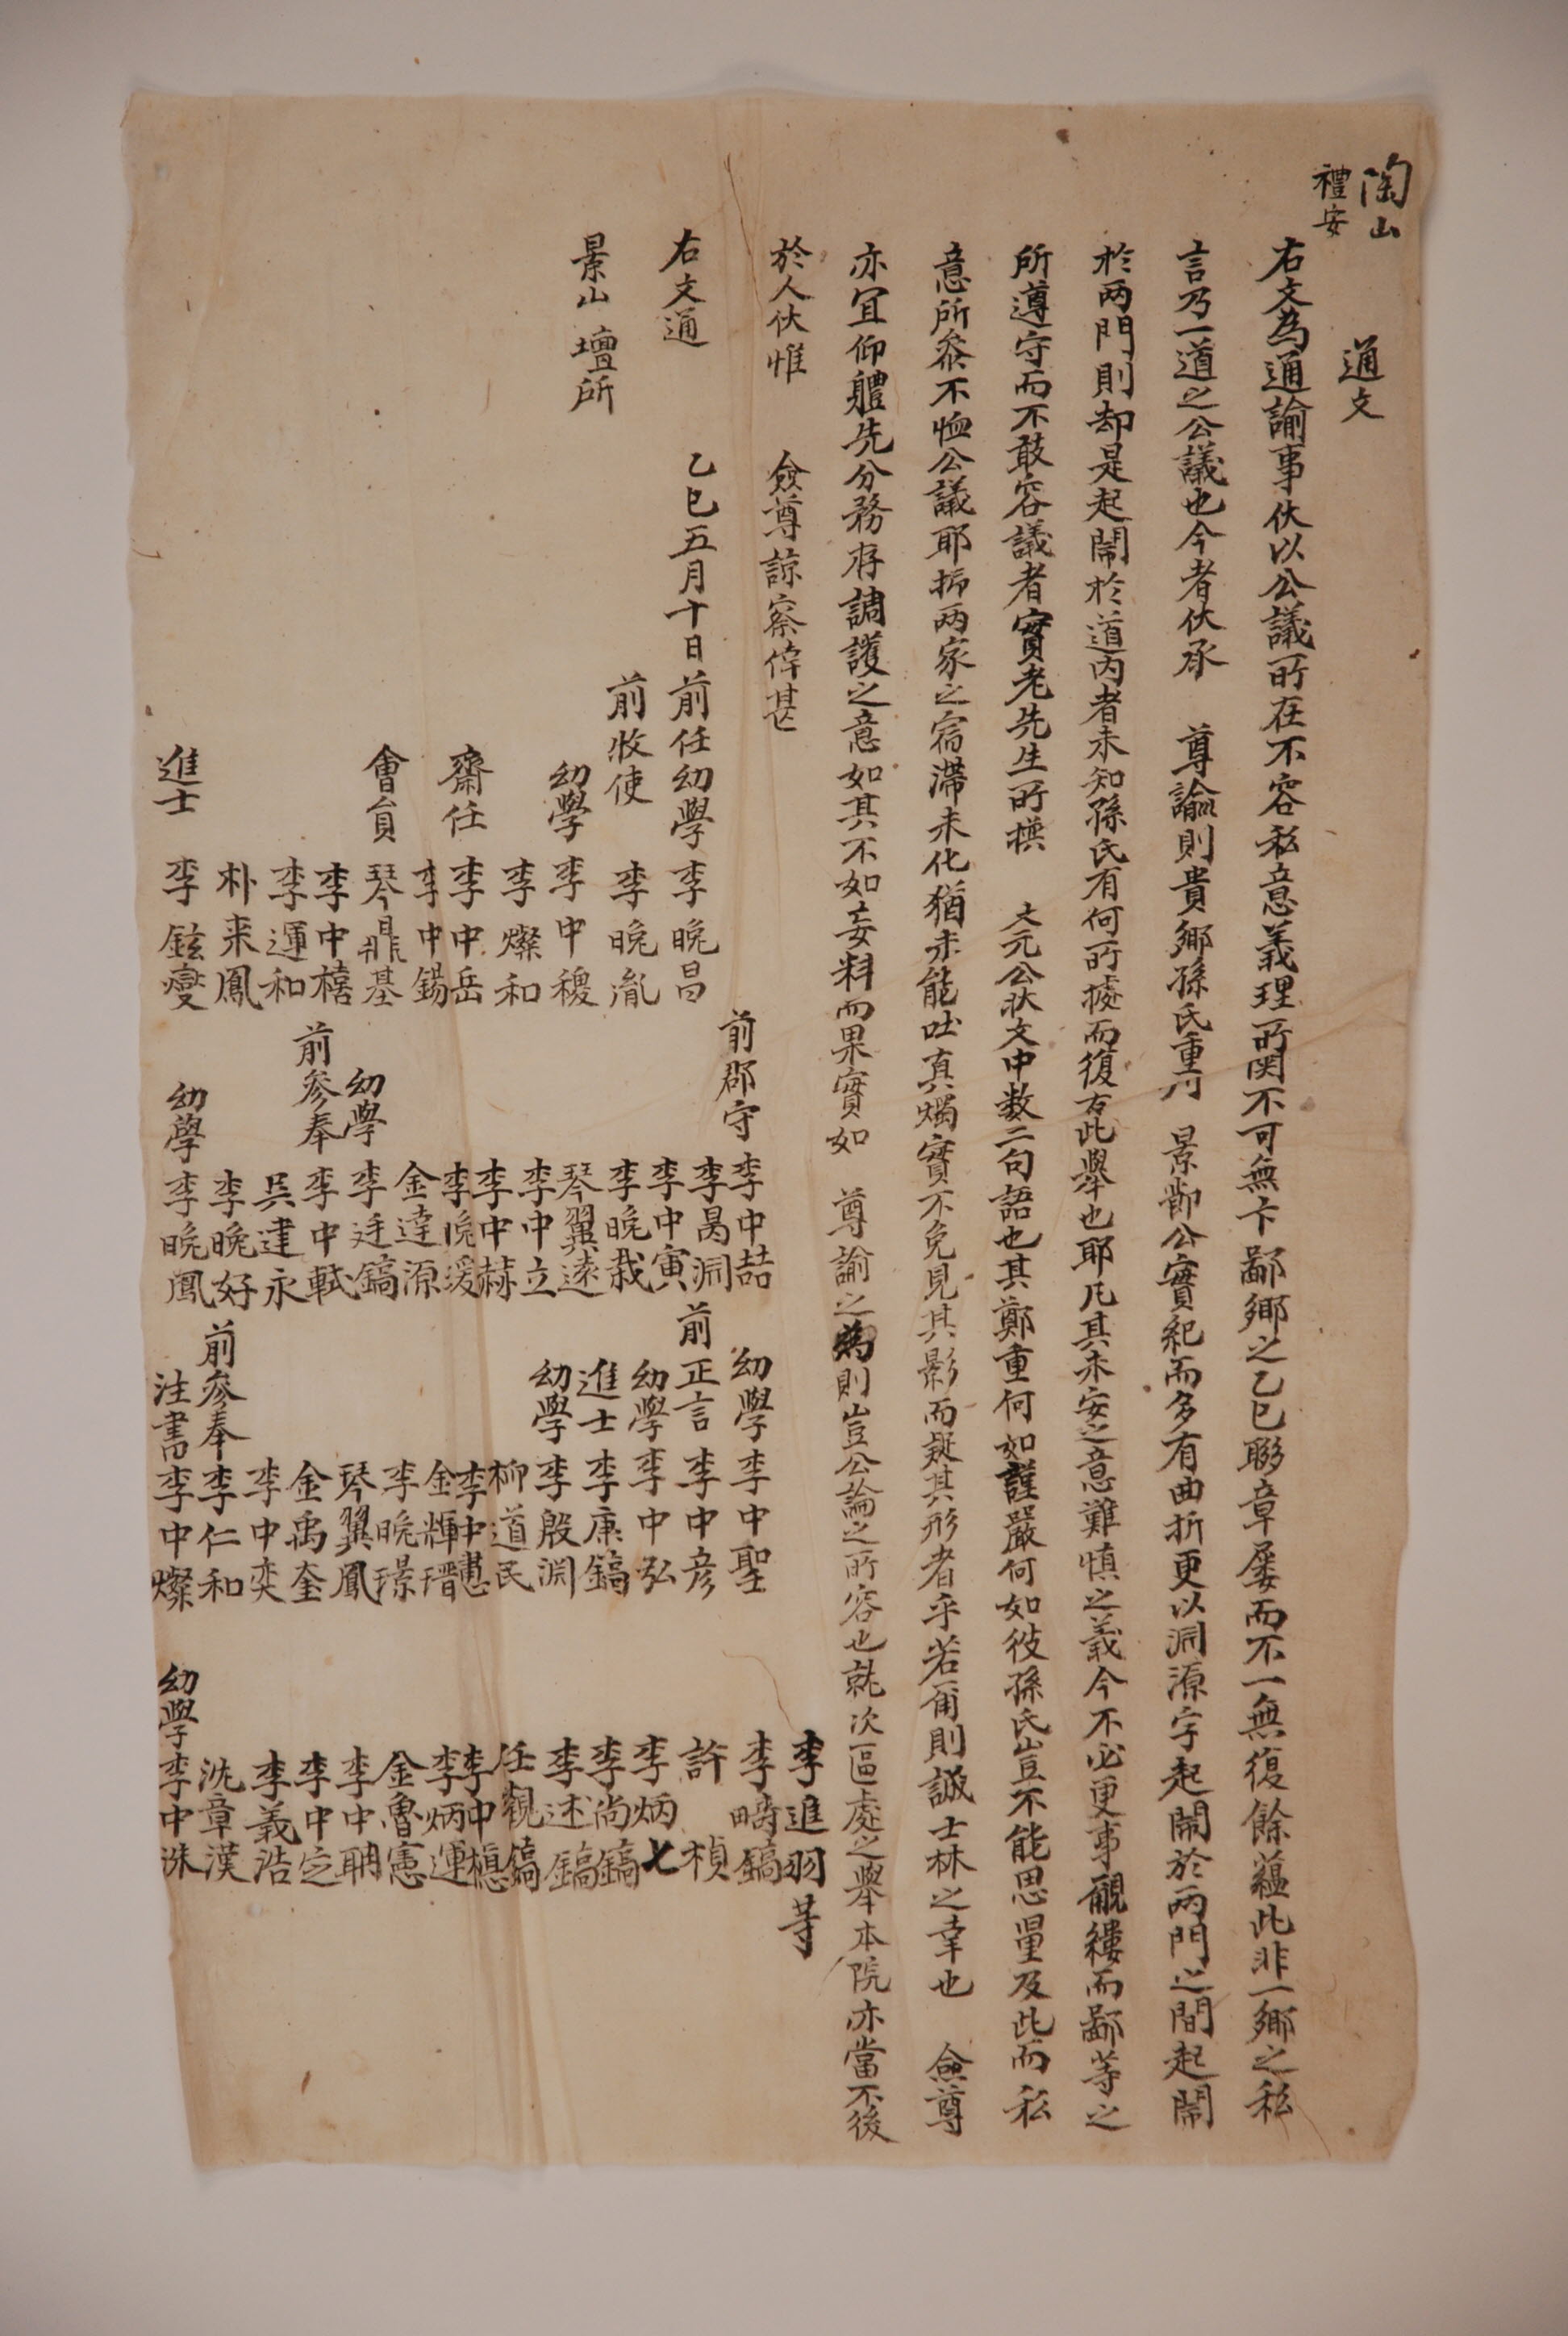 陶山
禮安
通文
右文爲通諭事伏以公議所在不容私意義理所関不可無卞鄙鄉之乙巳聯章屢而不一無復餘蘊此非一鄉之私
言乃一道之公議也今者伏承 尊諭則貴鄉孫氏重刊 景節公實紀而多有曲折更以淵源字起鬧於兩門之間起鬧
於兩門則却是起鬧於道內者未知孫氏有何所據而復有此擧也耶凡其未安之意難愼之義今不必更事覼縷而鄙等之
所遵守而不敢容議者實老先生所撰 文元公狀文中数二句語也其鄭重何如謹嚴何如彼孫氏豈不能思量及此而私
意所蔡不恤公議耶抑兩家之宿滯未化猶未能吐眞燭實不免見其影而疑其形者乎若爾則誠士林之幸也 僉尊
亦宜仰軆先分務存調護之意如其不如妄料而果實如 尊諭之爲則豈公論之所容也就次區處之擧本院亦當不後
於人伏惟 僉尊諒察倖甚
右文通
景山壇所
乙巳五月十日
前任幼學李晩昌
前牧使 李晩胤
幼學李中稷
李燦和
齋任 李中岳
李中錫
會員 琴鼎基
李中橲
李運和
朴来鳳
進士 李鉉燮
前郡守李中喆
李昺淵
李中寅
李晩栽
琴翼遠
李中立
李中赫
李晩煖
金達源
幼學李廷鎬
前參奉李中軾
吳建永
李晩好
幼學李晩鳳
幼學李中聖
前正言李中彦
幼學李中弘
進士李康鎬
幼學李殷淵
柳道民
李中憓
金輝瑨
李晩璟
琴翼鳳
金禹奎
李中奕
前參奉李仁和
注書李中燦
李進羽等
李疇鎬
許 楨
李炳七
李尚鎬
李述鎬
任觀鎬
李中檍
李炳運
金魯憲
李中聃
李中定
李義浩
沈章漢
幼學李中洙